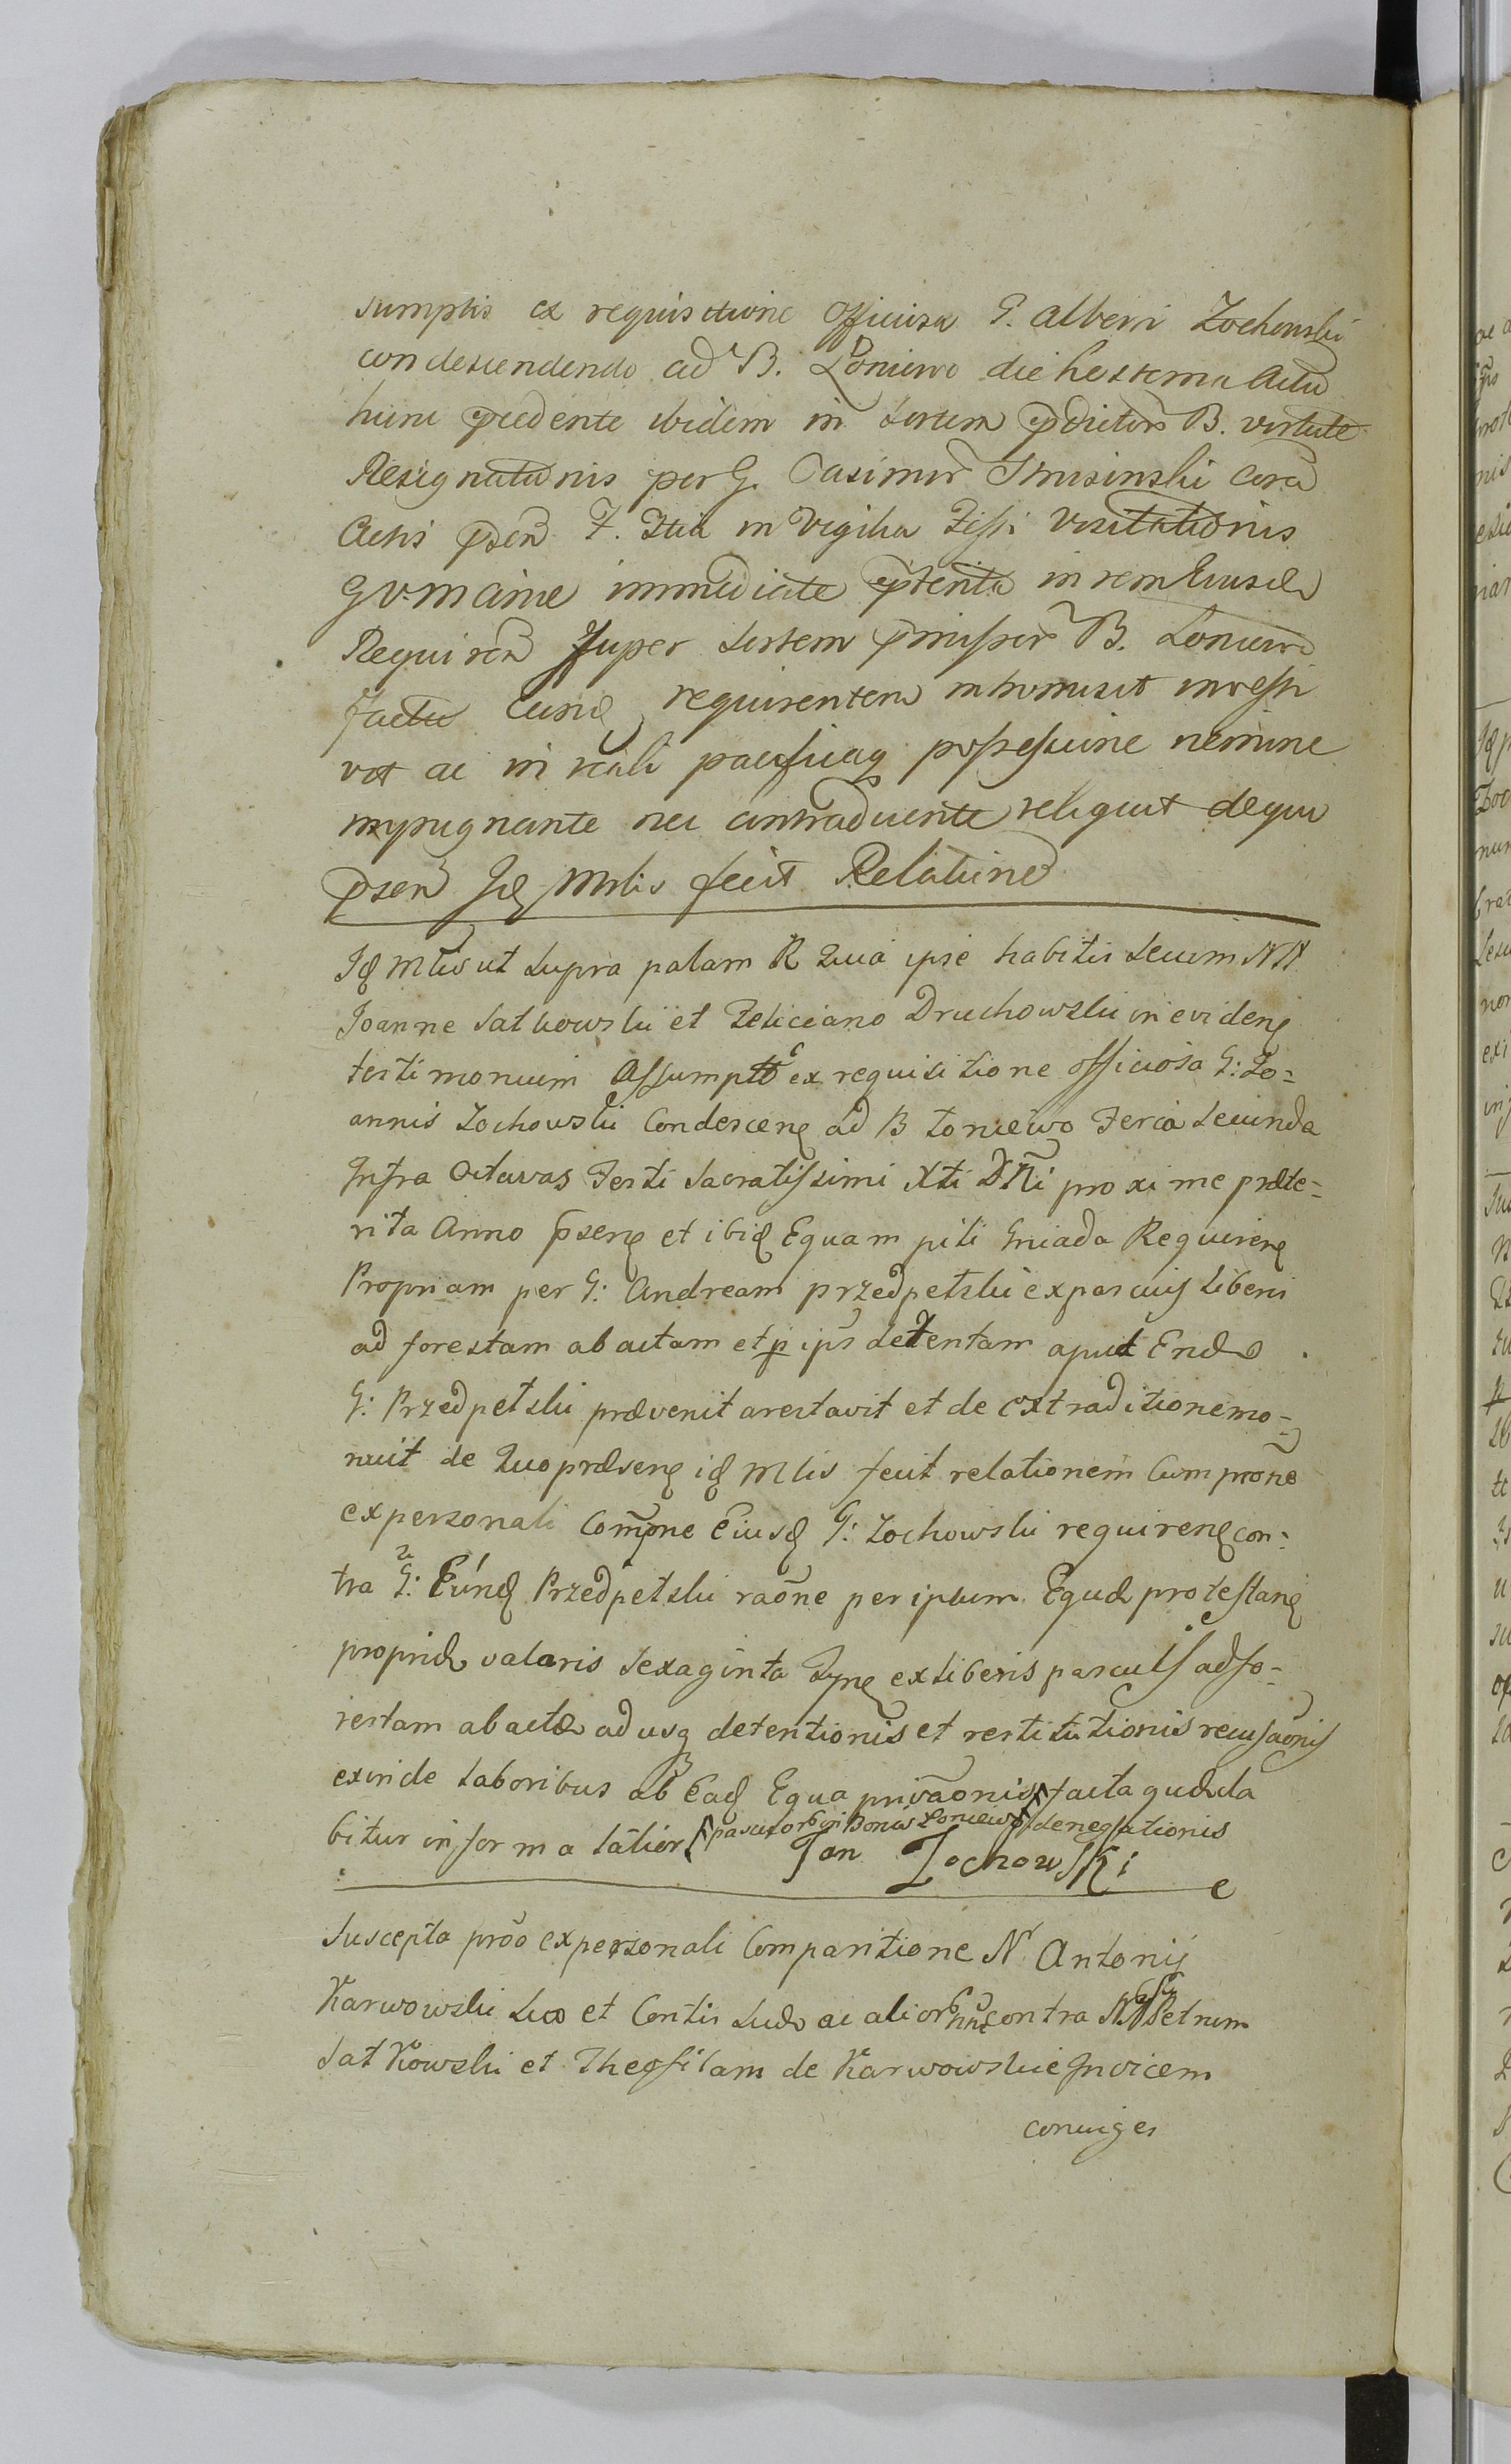 sumptis ex requisitione officiosa G. Alberi Zochowski
condescendendo ad B. Łoniewo die hesterna Actũ
hunc p̃cedente ibidem in Sortem p̃dictorũ B. virtute
Resignationis per G. Casimirũ Trusinski corã
Actis p̃sen F. 3tia in Vigilia Festi Visitationis
immediate p̃terita in rem Eiusd
Requiren super Sortem p̃missor B. Łoniewo
facta eund requirentem intromisit investi
vit ac in reali pacificaq possessione nemine
impugnante nec contradicente reliquit de quo
p̃sen Id Mlis fecit Relationẽ
Id Mlis ut Supra palam R Qua ipse habitis Secum NN
Joanne Satkowski et Feliciano Druchowski in eviden
testimonium Assumptis ex requisitione officiosa G: Jo=
annis Zochowski Condescen ad B Łoniewo Feria Secunda
Infra Octavas Festi Sacratissimi Xti Dñi proxime præte=
rita Anno p̃sen et ibid Equam pili Gniada Requiren
Propriam per G: Andream Przedpetski ex pascuis Liberis
ad forestam abactam et p ips detentam apud Eund
G: Przedpetski prævenit arestavit et de extraditione mo=
nuit de Quo præsen id Mlis fecit relationem Cum prõne
ex personali Compne Eiusd G: Zochowski requiren con=
tra G: Eund Przedpetski raõne per ipsum Equæ protestan
propriæ valoris Sexaginta Tyn ex Liberis pascuis ad fo=
restam abactæ ad usq detentionis et restitutionis recusaõnis
exinde Laboribus ab Ead Equa privaõnis facta quæ da
bitur in forma Latior pascuor in Bonis Łoniewo denegationis
Jan Zochowski
Suscepta prõo ex personali Comparitione N Antonij
Karwowski Suo et Contis Suæ ac alior contra NN Petrum
Satkowski et Theofilam de Karwowskie Invicem
coniuges